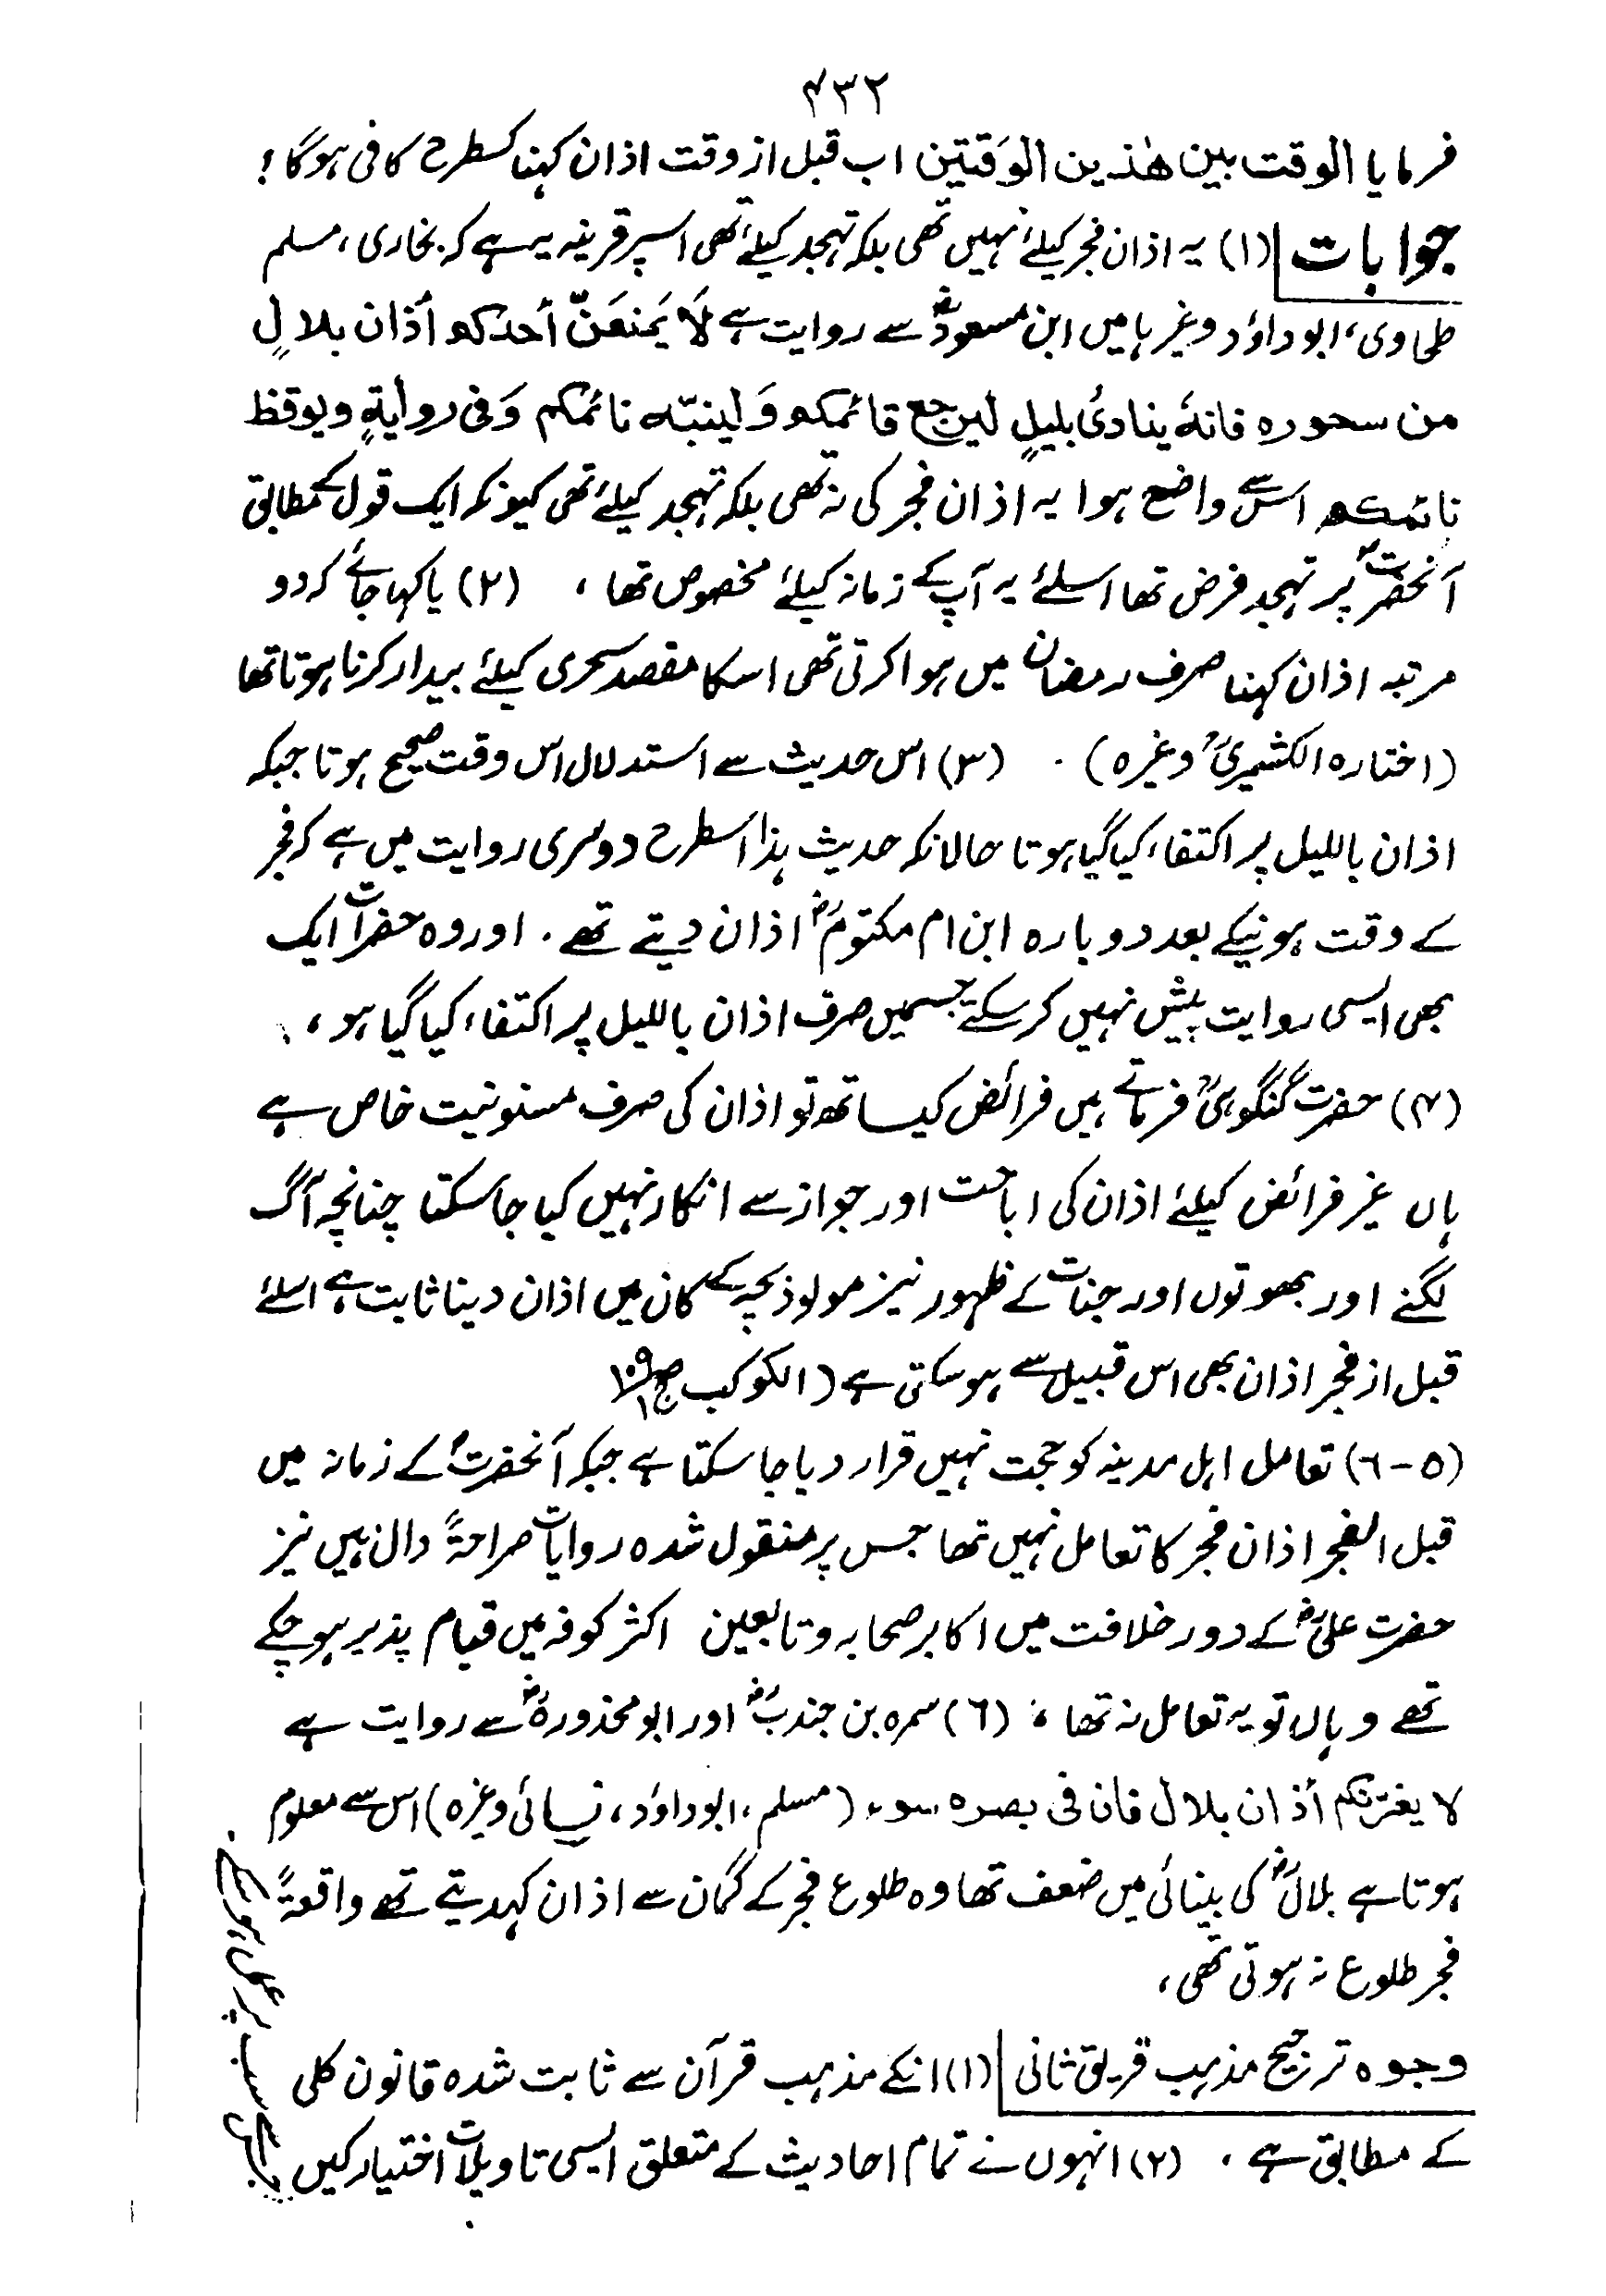 ۴۳۲
فرمایا الوقت بین ھٰذین الوَقتین اب قبل از وقت اذان کہنا کسطرح کافی ہوگا؟
جوابات (۱) یہ اذان فجر کیلئے نہیں تھی بلکہ تہجد کیلئے تھی اسپر قرینہ یہ ہے کہ بخاری، مسلم
طحاوی، ابوداؤد وغیرہا میں ابن مسعودؓ سے روایت ہے لَا یَمنعَنّ أحدکم أذان بلالٍ
من سحورہ فانہٗ ینادیُ بلیلٍ لیرجع قائمکم وَلینبّہ نائمکم وَفی روایةٍ ویوقظ
نائمکم اس سے واضح ہوا یہ اذان فجر کی نہ تھی بلکہ تہجد کیلئے تھی کیونکہ ایک قول کے مطابق
آنحضرتؐ پر تہجد فرض تھا اسلئے یہ آپ کے زمانہ کیلئے مخصوص تھا، (۲) یا کہا جائے کہ دو
مرتبہ اذان کہنا صرف رمضان میں ہوا کرتی تھی اسکا مقصد سحری کیلئے بیدار کرنا ہوتا تھا
(اختارہ الکشمیریؒ وغیرہ) ۔ (۳) اس حدیث سے استدلال اس وقت صحیح ہوتا جبکہ
اذان باللیل پر اکتفاء کیا گیا ہوتا حالانکہ حدیث ہذا اسطرح دوسری روایت میں ہے کہ فجر
کے وقت ہونیکے بعد دوبارہ ابن ام مکتومؓ اذان دیتے تھے۔ اور وہ حضرات ایک
بھی ایسی روایت پیش نہیں کرسکتے جسمیں صرف اذان باللیل پر اکتفاء کیا گیا ہو،
(۴) حضرت گنگوہیؒ فرماتے ہیں فرائض کیساتھ تو اذان کی صرف مسنونیت خاص ہے
ہاں غیر فرائض کیلئے اذان کی اباحت اور جواز سے انکار نہیں کیا جاسکتا چنانچہ آگ
لگنے اور بھوتوں اور جنات کے ظہور نیز مولود بچہ کے کان میں اذان دینا ثابت ہے اسلئے
قبل از فجر اذان بھی اس قبیل سے ہوسکتی ہے (الکوکب ج۱ ص۱۰۹
(۵-٦) تعامل اہل مدینہ کو حجت نہیں قرار دیا جاسکتا ہے جبکہ آنحضرتؐ کے زمانہ میں
قبل الفجر اذان فجر کا تعامل نہیں تھا جس پر منقول شدہ روایات صراحۃً دال ہیں نیز
حضرت علیؓ کے دور خلافت میں اکابر صحابہ وتابعین اکثر کوفہ میں قیام پذیر ہوچکے
تھے وہاں تو یہ تعامل نہ تھا، (٦) سمرہ بن جندبؓ اور ابو محذورہؓ سے روایت ہے
لا یغرنکم أذان بلال فان فی بصرہ سوء (مسلم، ابوداؤد، نسائی وغیرہ) اس سے معلوم
ہوتا ہے بلالؓ کی بینائی میں ضعف تھا وہ طلوع فجر کے گمان سے اذان کہدیتے تھے واقعۃً
فجر طلوع نہ ہوتی تھی،
وجوہ ترجیح مذہب فریق ثانی (۱) انکے مذہب قرآن سے ثابت شدہ قانون کلی
کے مطابق ہے۔ (۲) انہوں نے تمام احادیث کے متعلق ایسی تاویلات اختیار کیں
جس سے سب پر عمل ہوسکے۔